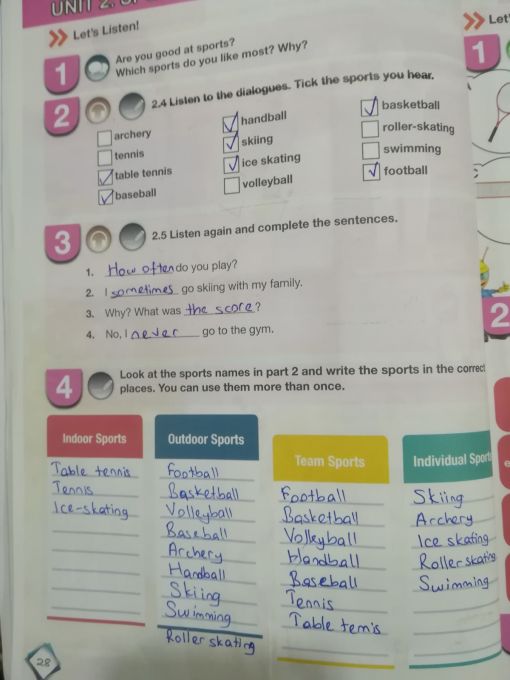 UNIT 2
Let's Listen!
1
Are you good at sports?
Which sports do you like most? Why?
2
2.4 Listen to the dialogues. Tick the sports you hear.
archery
tennis
table tennis
baseball
handball
skiing
ice skating
volleyball
basketball
roller-skating
swimming
football
3
2.5 Listen again and complete the sentences.
1. How often do you play?
2. I sometimes go skiing with my family.
3. Why? What was the score?
4. No, I never go to the gym.
4
Look at the sports names in part 2 and write the sports in the correct
places. You can use them more than once.
Indoor Sports
Table tennis
Tennis
Ice-skating
Outdoor Sports
Football
Basketball
Volleyball
Baseball
Archery
Handball
Skiing
Swimming
Roller skating
Team Sports
Football
Basketball
Volleyball
Handball
Baseball
Tennis
Table temis
Individual Sport
Skiing
Archery
Ice skating
Roller skating
Swimming
28
Let'
1
2